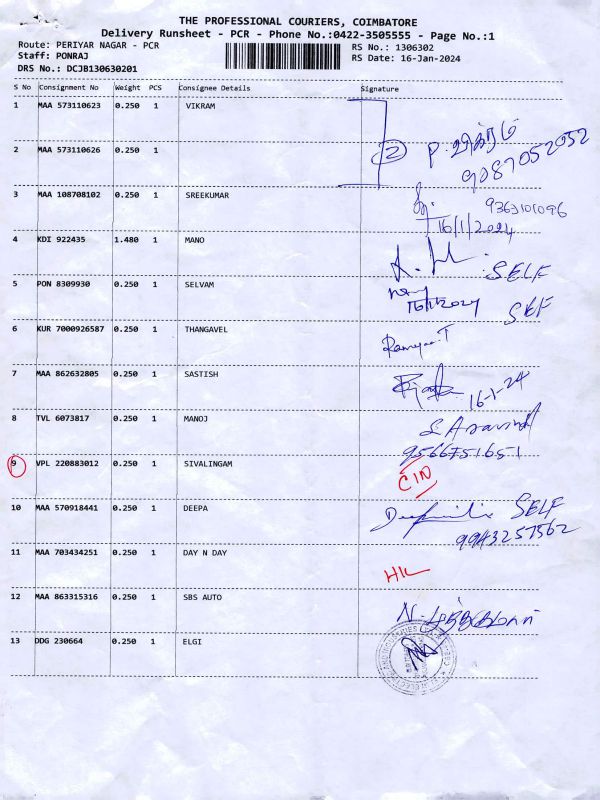 THE PROFESSIONAL COURIERS, COIMBATORE
Delivery Runsheet - PCR - Phone No.:0422-3505555 - Page No.:1
Route: PERIYAR NAGAR - PCR
RS No.: 1306302
Staff: PONRAJ
RS Date: 16-Jan-2024
DRS No.: DCJB130630201
S No Consignment No Weight PCS Consignee Details Signature
1 MAA 573110623 0.250 1 VIKRAM
2 MAA 573110626 0.250 1 2
9087052052
3 MAA 108708102 0.250 1 SREEKUMAR 9363101096
16/1/2024
4 KDI 922435 1.480 1 MANO SELF
5 PON 8309930 0.250 1 SELVAM
16/1/2024 SELF
6 KUR 7000926587 0.250 1 THANGAVEL
7 MAA 862632805 0.250 1 SASTISH 16-1-24
8 TVL 6073817 0.250 1 MANOJ S Aravind
9566751651
9 VPL 220883012 0.250 1 SIVALINGAM
10 MAA 570918441 0.250 1 DEEPA SELF
9943257562
11 MAA 703434251 0.250 1 DAY N DAY
12 MAA 863315316 0.250 1 SBS AUTO
13 DDG 230664 0.250 1 ELGI